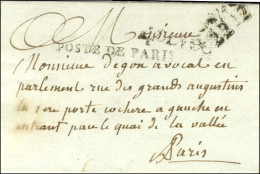 Monsieur
POSTE DE PARIS
Monsieur degon avocat en
parlement rue des grands augustins
la 1ere porte cochere a gauche en
entrant par le quai de la vallée
a Paris